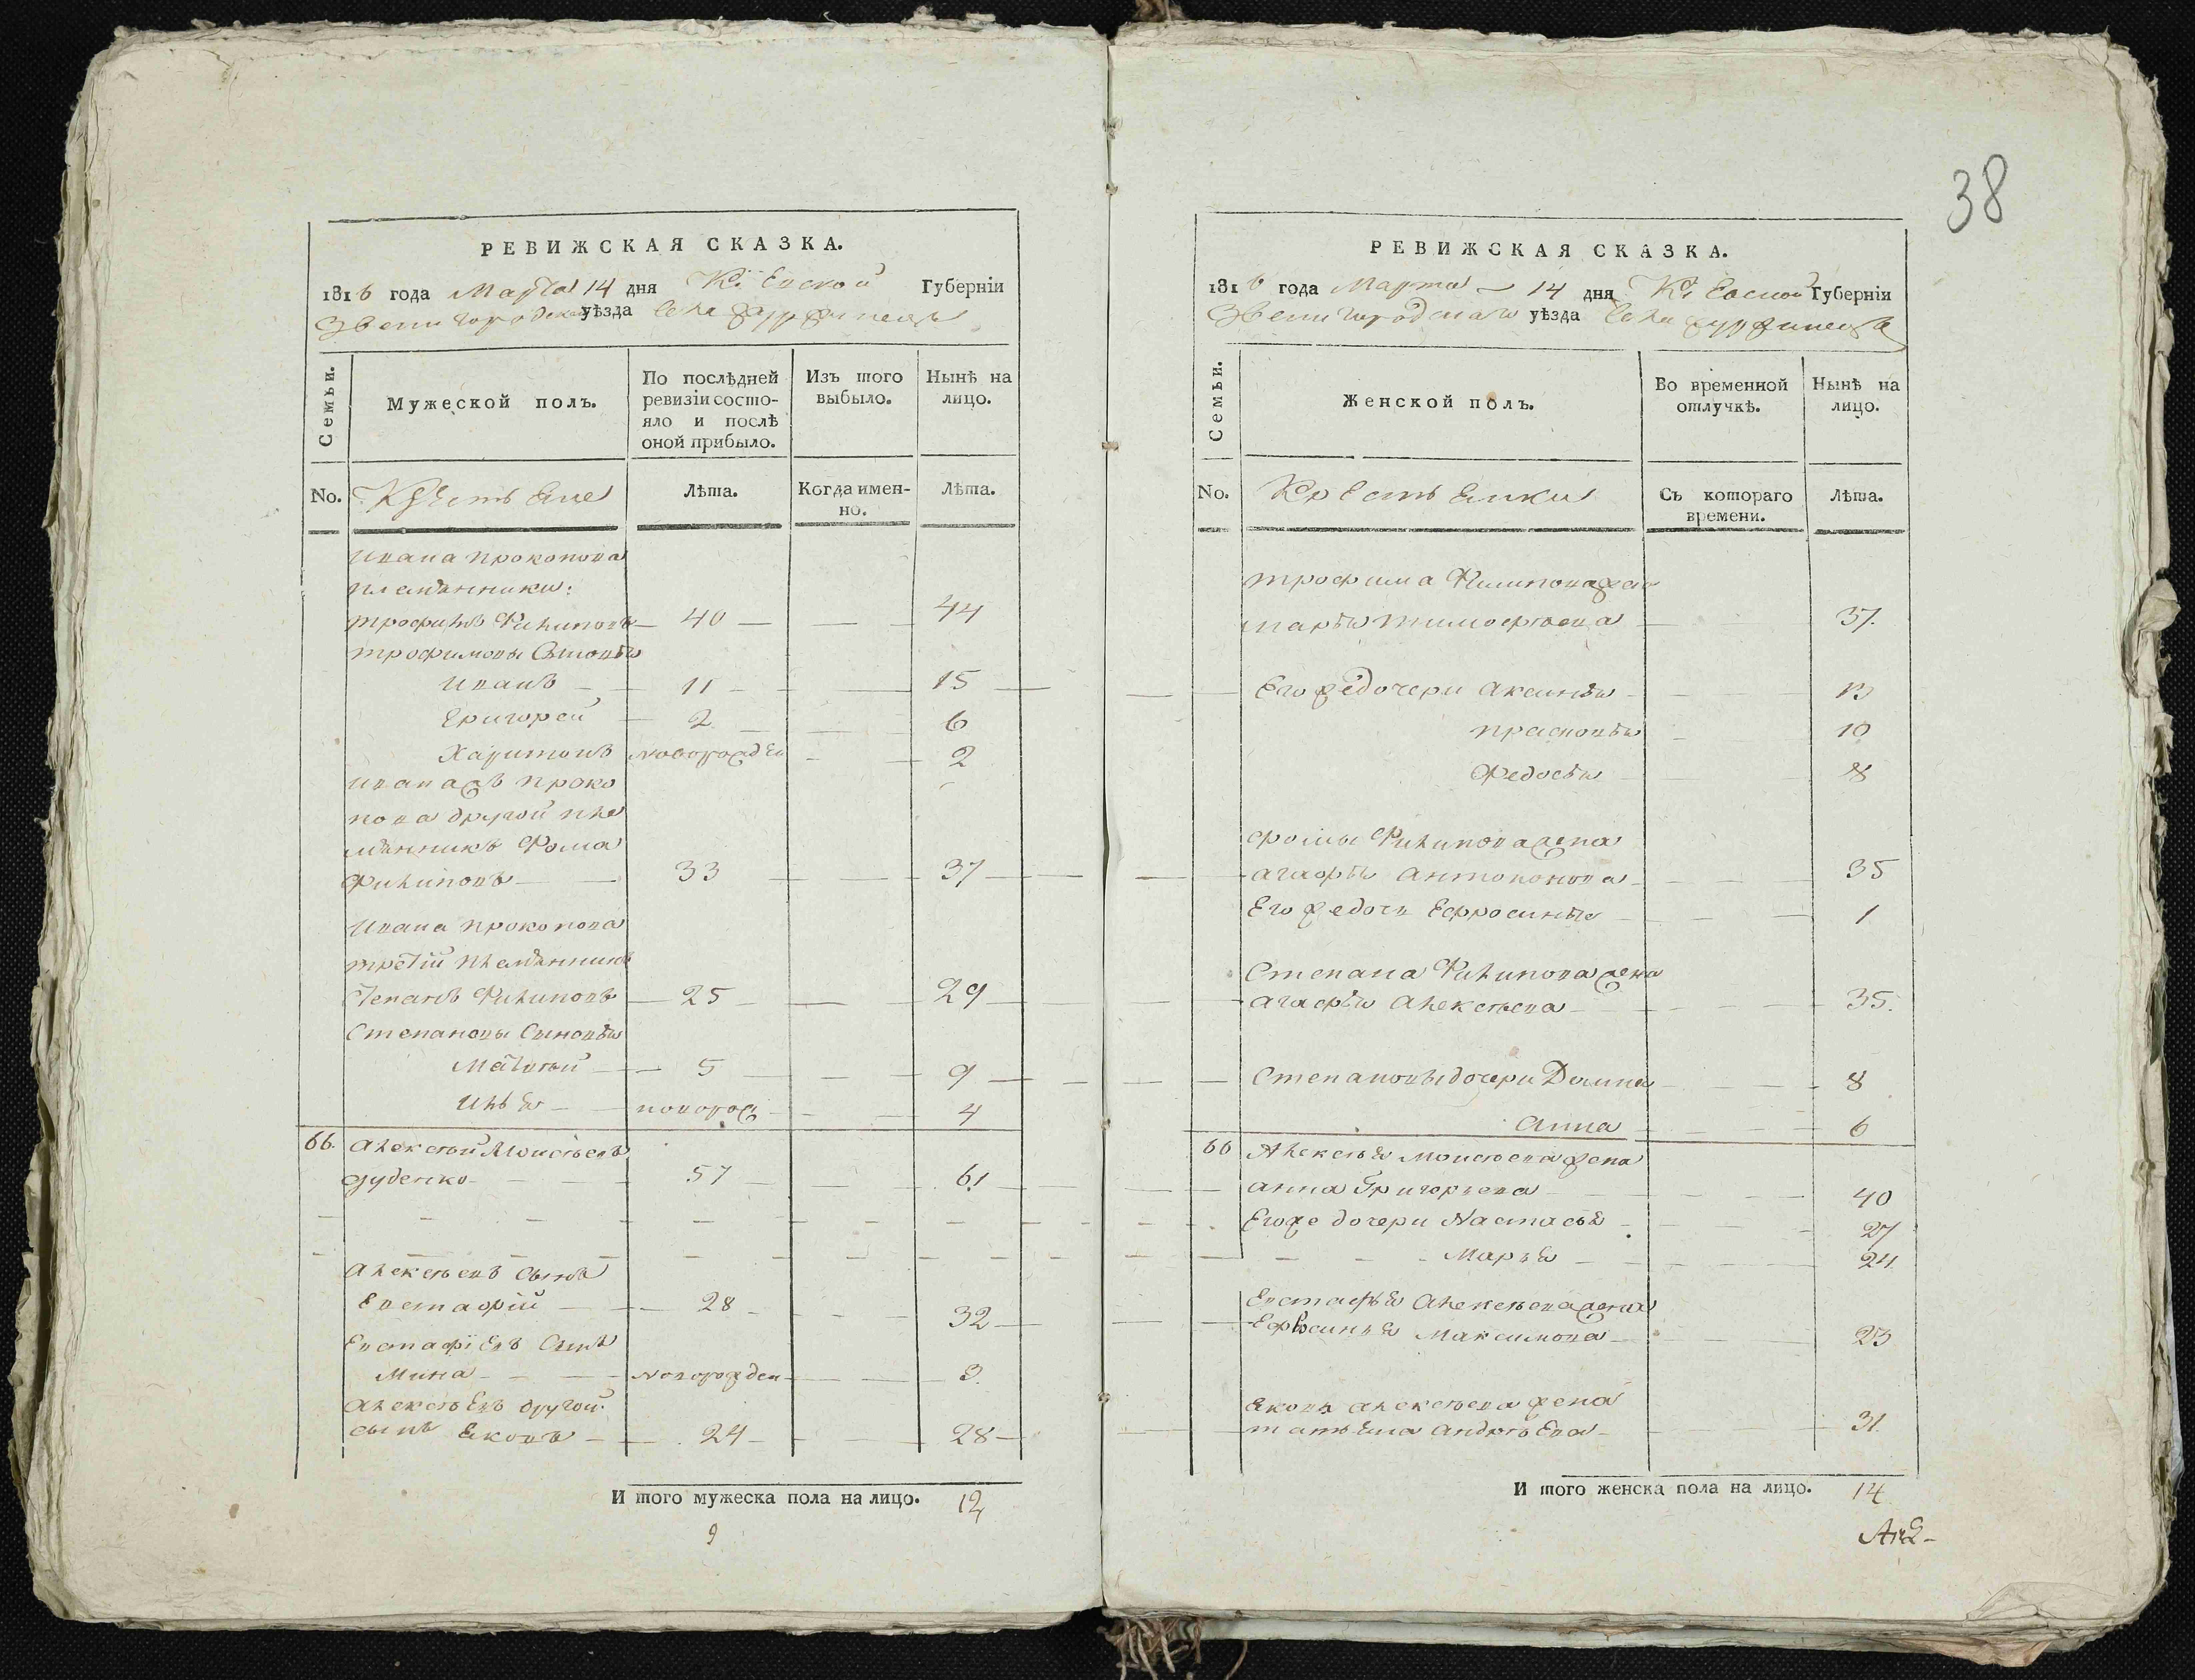 38
РЕВИЖСКАЯ СКАЗКА.
1816 года Марта 14 дня Кіевской Губерніи
Звенигородскаго уѣзда Села
Семьи.
Мужеской полъ.
По послѣдней ревизіи состояло и послѣ оной прибыло.
Изъ того выбыло.
Нынѣ на лицо.
No.
Крестьяне
Лѣта.
Когда именно.
Лѣта.
Ивана Прокопова
племянники:
трофимъ Филиповъ 40 44
трофимовы Сыновья
Иванъ 11 15
Григорей 2 6
Харитонъ новорожден 2
Ивана жъ Проко
пова другой пле
мянникъ Фома
Филиповъ 33 37
Ивана Прокопова
третій племянникъ
Степанъ Филиповъ 25 29
Степановы Сыновья
Матвѣй 5 9
Илья новорож 4
66. Алексѣй Моисѣевъ
дуденко 57 61
Алексѣевъ Сынъ
Евстафій 28 32
Евстафіевъ Сынъ
Мина Новорожден 3.
Алексѣевъ другой
сынъ Яковъ 24 28
И того мужеска пола на лицо. 12
9
РЕВИЖСКАЯ СКАЗКА.
1816 года Марта 14 дня Кіевской Губерніи
Звенигородскаго уѣзда Села
Семьи.
Женской полъ.
Во временной отлучкѣ.
Нынѣ на лицо.
No.
Крестьянки
Съ котораго времени.
Лѣта.
трофима Филипова жена
марья тимофѣева 37.
Его же дочери Аксинья 13
прасковья 10
Федосья 8
фомы Филипова жена
агафья Антонова 35
Его же дочь Ефросинья 1
Степана Филипова жена
агафья Алексѣева 35.
Степановы дочери 8
Анна 6
66 Алексѣя Моисѣева жена
анна Григорьева 40
Его же дочери Настасья 27
Марья 24
Евстафья Алексѣева жена
Ефросинья Максимова 23
Якова Алексѣева жена
татьяна Андрѣева 31.
И того женска пола на лицо. 14